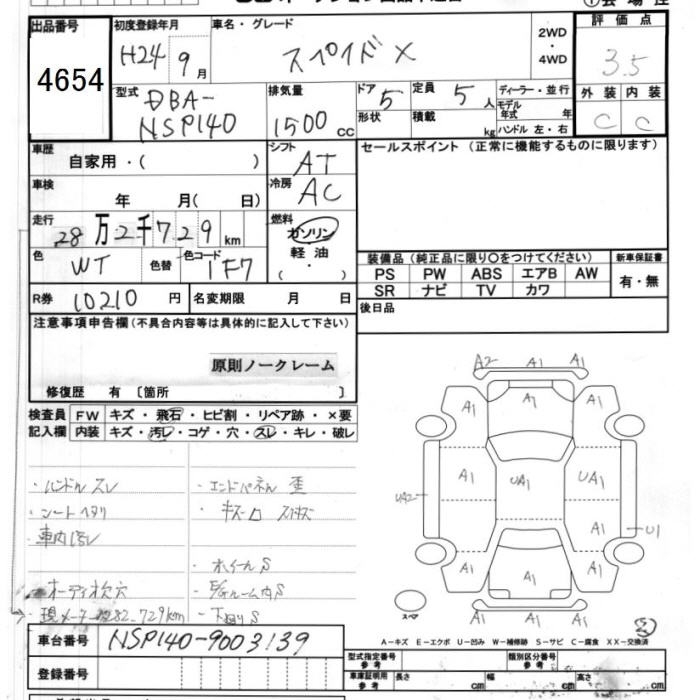 出品番号
4654
初度登録年月
H24 9月
車名・グレード
スペイド X
2WD
・
4WD
評価点
3.5
外装 内装
C C
型式
DBA-
NSP140
排気量
1500 CC
ドア 5
定員 5人
形状
積載 kg
ディーラー・並行
モデル年式 年
ハンドル 左・右
車歴
自家用・( )
シフト
AT
セールスポイント (正常に機能するものに限ります)
車検
年 月( 日)
冷房
AC
走行
28万2千729km
燃料
ガソリン
軽油
( ・ )
色
WT
色替
色コード
1F7
装備品 (純正品に限り〇をつけてください)
新車保証書
PS PW ABS エアB AW
有・無
SR ナビ TV カワ
R券 10210円
名変期限 月 日
後日品
注意事項申告欄(不具合内容等は具体的に記入して下さい)
原則ノークレーム
修復歴 有 〔箇所 〕
検査員 FW キズ・飛石・ヒビ割・リペア跡・×要
記入欄 内装 キズ・汚レ・コゲ・穴・スレ・キレ・破レ
A2 A1 A1
A1 A1 A1
A1 UA1 UA1
UA2
A1 U1
A1 A1 A1
A1 A1 A1
スペア
・ハンドルスレ
・エンドパネル歪
・シートヘタリ
キズ
・車内汚レ
・ホイールS
・オーディオ欠穴
・E/Gルーム内S
・現メーター 282,729km
・下廻りS
車台番号 NSP140-9003139
登録番号
A-キズ E-エクボ U-凹み W-補修跡 S-サビ C-腐食 XX-交換済
型式指定番号
参考
類別区分番号
参考
車庫証明用
参考
長さ cm
幅 cm
高さ cm